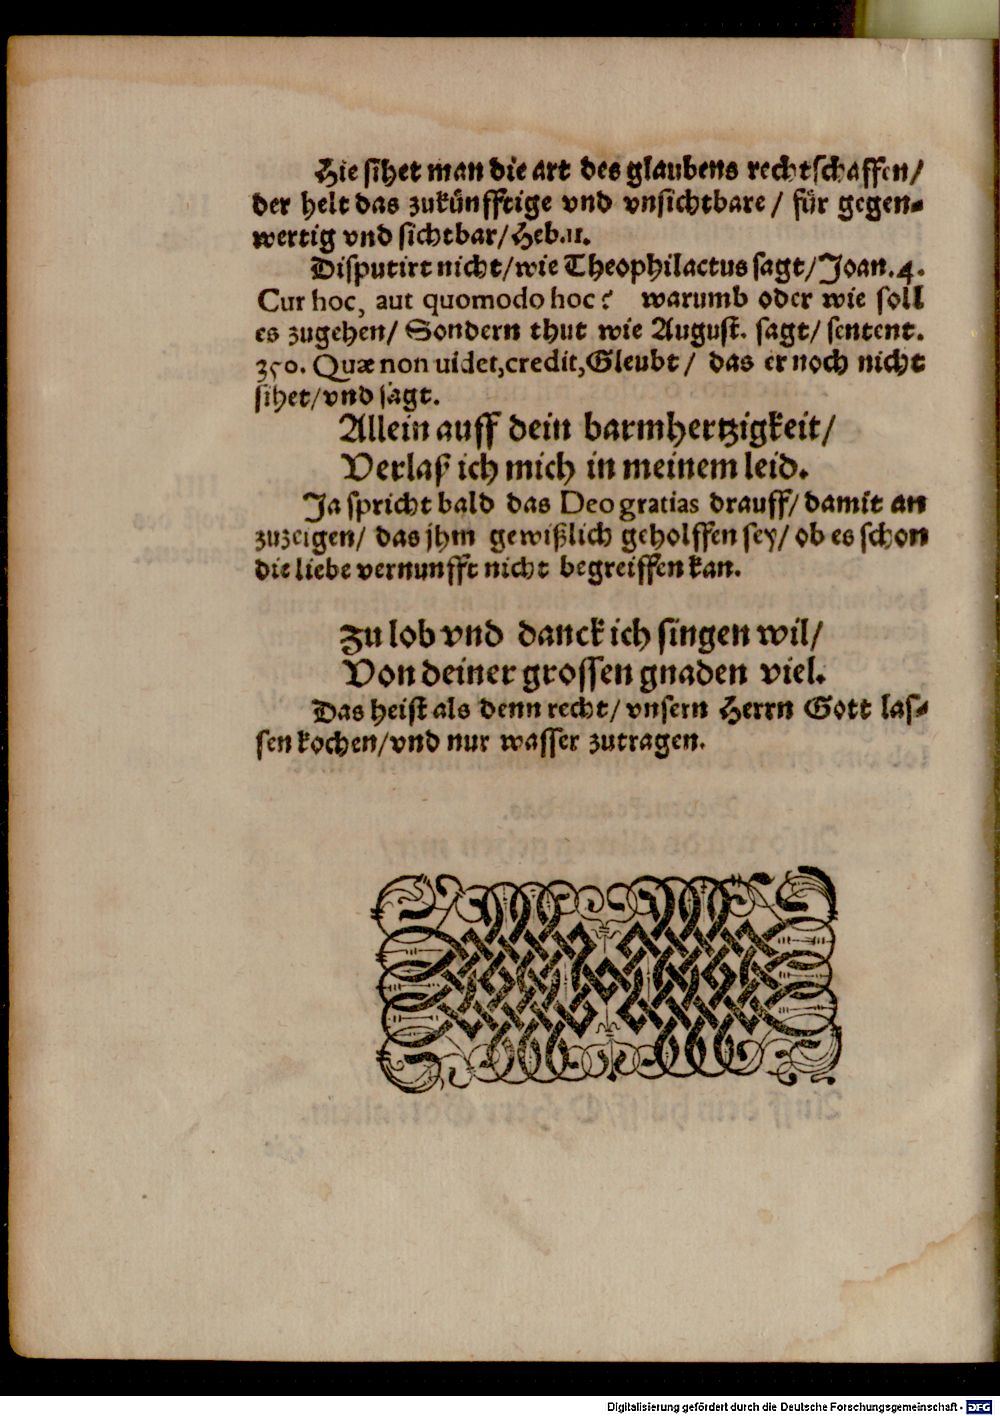 Hie sihet man die art des glaubens rechtschaffen/
der helt das zukünfftige vnd vnsichtbare / für gegen-
wertig vnd sichtbar/Heb.11.
Disputirt nicht/wie Theophilactus sagt/Joan.4.
Cur hoc, aut quomodo hoc? warumb oder wie soll
es zugehen/ Sondern thut wie August. sagt/ sentent.
350. Quæ non uidet,credit,Gleubt/ das er noch nicht
sihet/vnd sagt.
Allein auff dein barmhertzigkeit/
Verlaß ich mich in meinem leid.
Ja spricht bald das Deo gratias drauff/ damit an
zuzeigen/ das jhm gewißlich geholffen sey/ ob es schon
die liebe vernunfft nicht begreiffen kan.
Zu lob vnd danck ich singen wil/
Von deiner grossen gnaden viel.
Das heist als denn recht/ vnsern Herrn Gott las-
sen kochen/vnd nur wasser zutragen.
Digitalisierung gefördert durch die Deutsche Forschungsgemeinschaft - DFG